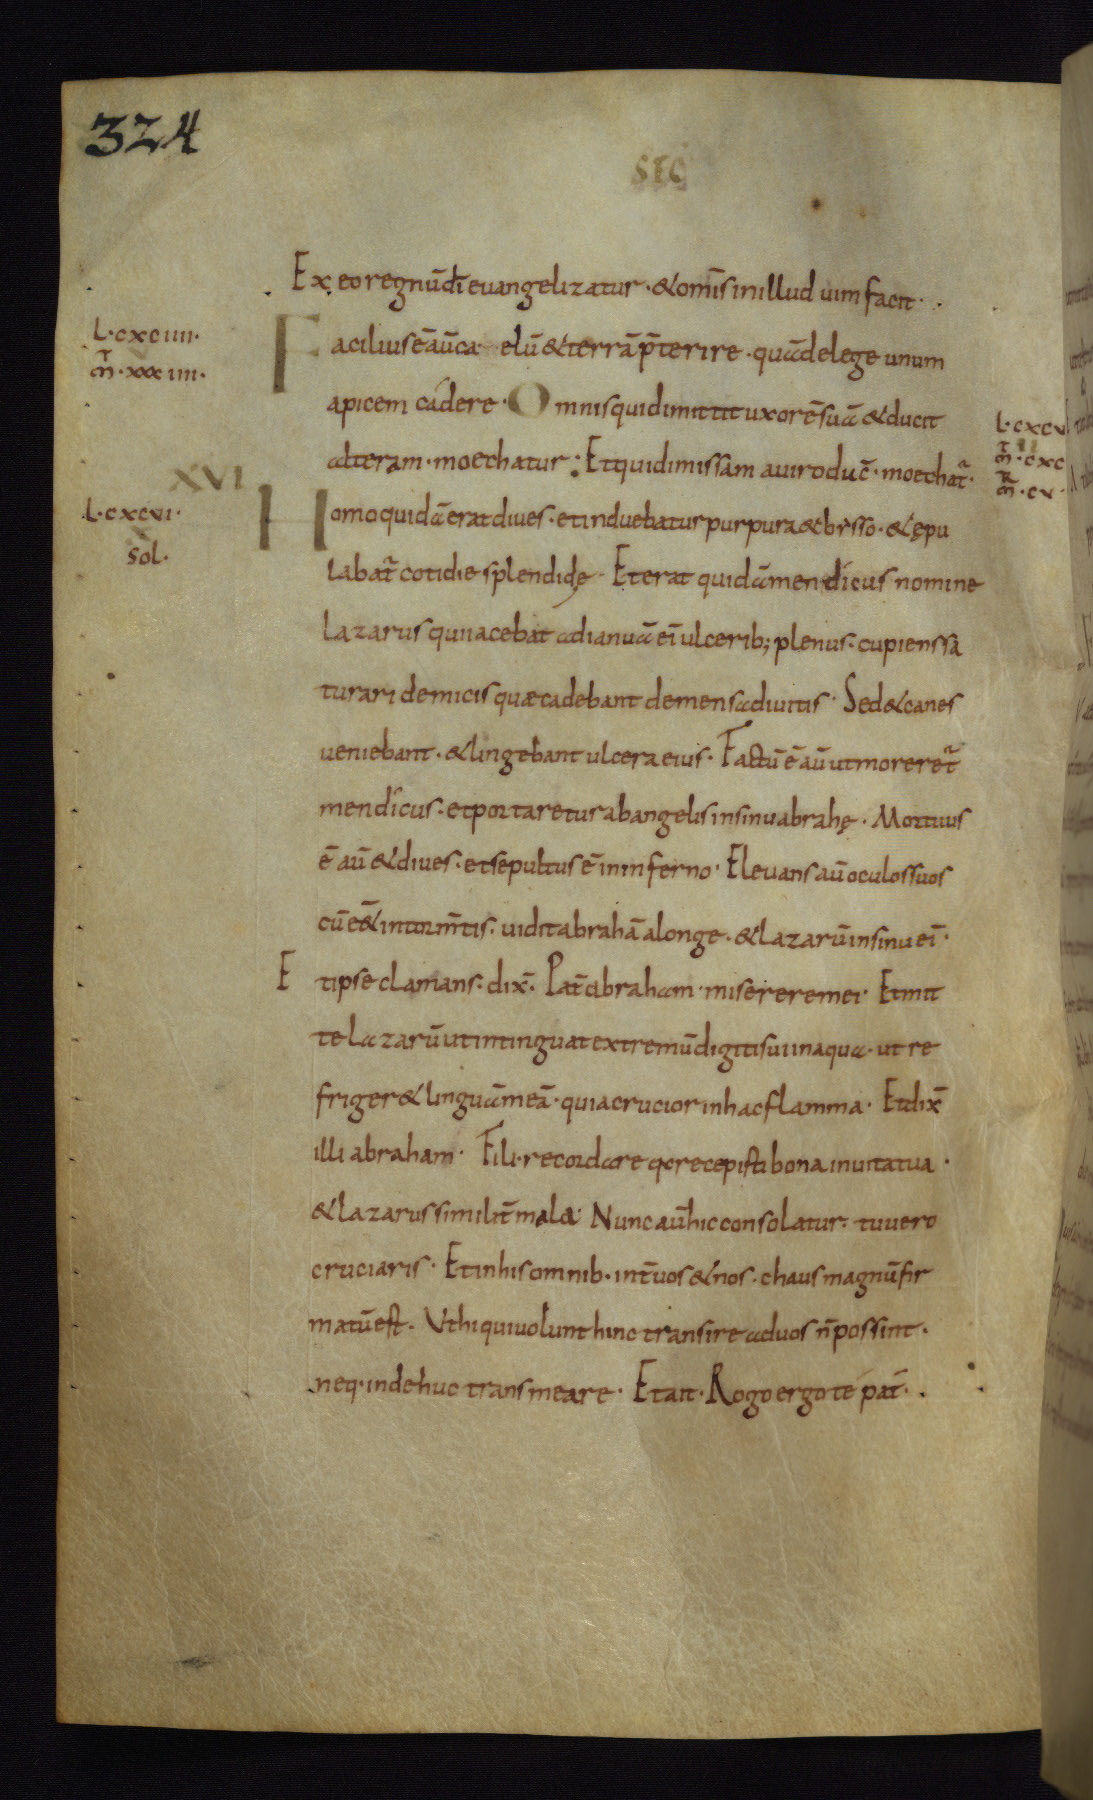 324
SEC
Ex eo regnū dī euangelizatur · & om̄is in illud uim facit ·
L · cxciiii ·
m̄ · xxxiiii ·
Facilius ē aū cælū & terrā p̄terire · quā de lege unum
apicem cadere · Omnis qui dimittit uxorē suā & ducit
L · cxcv
m̄ · cxc
m̄ · cv ·
alteram · moechatur · Et qui dimissam a uiro duc̄ · moechat̄ ·
XVI
L · cxcvi ·
sol ·
Homo quidā erat dives · et induebatur purpura & bysso · & ępu
labat̄ cotidie splendidę · Et erat quidā mendicus nomine
lazarus qui iacebat ad ianuā eī ulcerib; plenus · cupiens sa
turari de micis quæ cadebant de mensa divitis · Sed & canes
veniebant · & lingebant ulcera eius · Factū ē aū ut moreret̄
mendicus · et portaretur ab angelis in sinu abrahę · Mortuus
ē aū & dives · et sepultus ē in inferno · Elevans aū oculos suos
cū eēt in torm̄tis · uidit abrahā a longe · & lazarū in sinu eī ·
Et ipse clamans · dix̄ · Pat̄ abraham · miserere mei · Et mit
te lazarū ut intinguat extremū digiti sui in aqua · ut re
friger& linguā meā · quia crucior in hac flamma · Et dix̄
illi abraham · Fili · recordare qd recepisti bona in uita tua ·
& lazarus similit̄ mala · Nunc aū hic consolatur · tu vero
cruciaris · Et in his omnib · int̄ uos & nos · chaus magnū fir
matū est · Ut hi qui uolunt hinc transire ad uos n̄ possint ·
neq · inde huc transmeare · Et ait · Rogo ergo te pat̄ ·